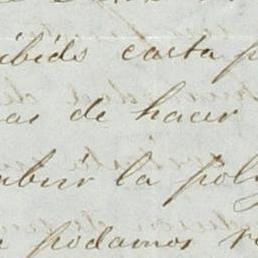 ibids carta p
as de hacer
ubrir la pol
podamos re